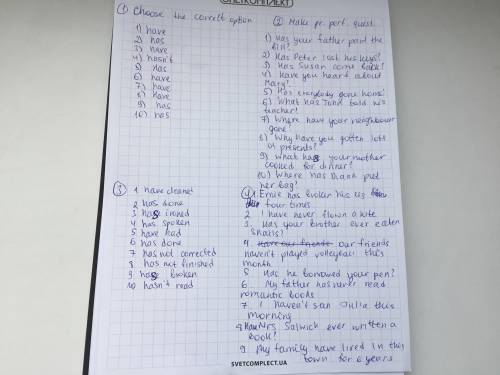 СВЕТКОМПЛЕКТ
① Choose the correct option
1) have
2) has
3) have
4) hasn't
5) Has
6) have
7) have
8) have
9) has
10) has
② Make pr. perf. quest.
1) Has your father paid the bill?
2) Has Peter lost his keys?
3) Has Susan come back?
4) Have you heard about Mary?
5) Has everybody gone home?
6) What has John told his teacher?
7) Where have your neighbour gone?
8) Why have you gotten lots of presents?
9) What has your mother cooked for dinner?
10) Where has Diana put her bag?
③
1 have cleaned
2 has done
3 has
4 has spoken
5 have had
6 has done
7 has not corrected
8 has not finished
9 has broken
10 hasn't read
④
1. Ernie has broken his leg four times
2 I have never flown a kite
3. Has your brother ever eaten snails?
4. Have our friends Our friends haven't played volleyball this month
5 Has he borrowed your pen?
6. My father has never read romantic books
7 I haven't san Julia this morning
8 Has Mrs Salwick ever written a book?
9 My family have lived in this town for 6 years
SVETCOMPLECT.UA